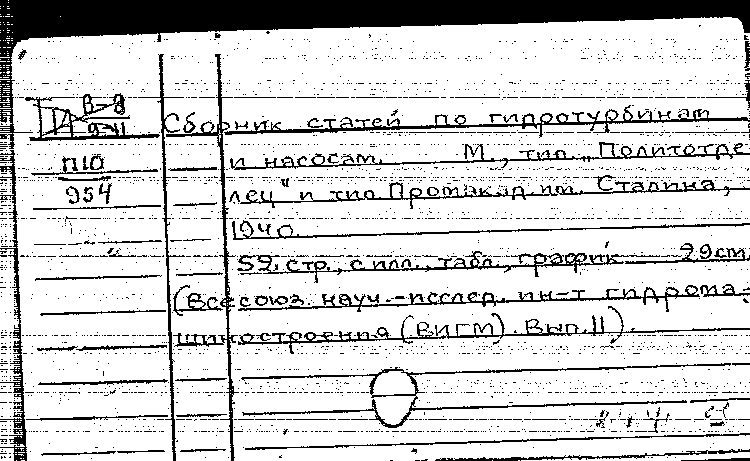 В-8
9-41
Сборник статей по гидротурбинам
П10
954
и насосам. М., тип. „Политотде
лец" и тип. Промакад. им. Сталина,
1940.
59. стр., с илл., табл., график 29см.
(Всесоюз. науч.-исслед. ин-т гидрома-
шиностроения (ВИГМ). Вып. II).